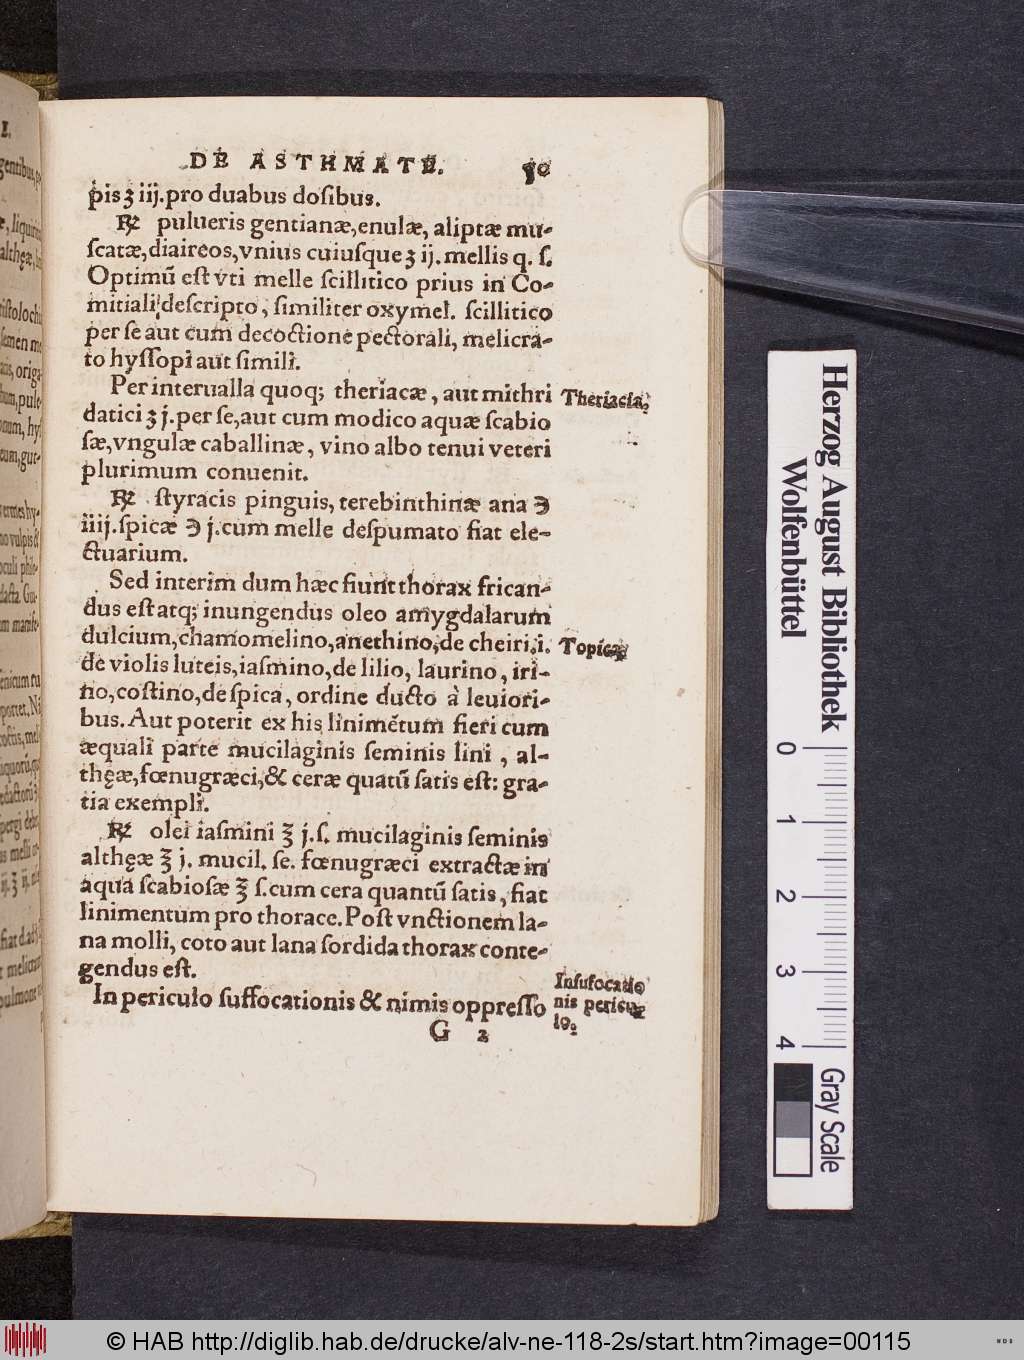 DE ASTHMATE. 50
pis ʒ iij. pro duabus dosibus.
℞ pulueris gentianæ, enulæ, aliptæ mu-
ſcatæ, diaireos, vnius cuiuſque ʒ ij. mellis q. ſ.
Optimū eſt vti melle ſcillitico prius in Co-
mitiali deſcripto, ſimiliter oxymel. ſcillitico
per ſe aut cum decoctione pectorali, melicra-
to hyſſopi aut ſimili.
Per interualla quoq; theriacæ, aut mithri
datici ʒ j. per ſe, aut cum modico aquæ ſcabio
ſæ, vngulæ caballinæ, vino albo tenui veteri
plurimum conuenit.
Theriaca,
℞ ſtyracis pinguis, terebinthinæ ana ℈
iiij. ſpicæ ℈ j. cum melle deſpumato fiat ele-
ctuarium.
Sed interim dum hæc fiunt thorax frican-
dus eſt atq; inungendus oleo amygdalarum
dulcium, chamomelino, anethino, de cheiri, i.
de violis luteis, iaſmino, de lilio, laurino, iri-
no, coſtino, de ſpica, ordine ducto à leuiori-
bus. Aut poterit ex his linimētum fieri cum
æquali parte mucilaginis ſeminis lini, al-
thęæ, fœnugræci, & ceræ quatū ſatis eſt: gra-
tia exempli.
Topica
℞ olei iaſmini ℥ j. ſ. mucilaginis ſeminis
althęæ ℥ j. mucil. ſe. fœnugræci extractæ in
aqua ſcabioſæ ℥ ſ. cum cera quantū ſatis, fiat
linimentum pro thorace. Poſt vnctionem la-
na molli, coto aut lana ſordida thorax conte-
gendus eſt.
In periculo ſuffocationis & nimis oppreſſo
Inſufocatio
nis pericu
lo.
G 2
Herzog August Bibliothek
Wolfenbüttel
0 1 2 3 4
Gray Scale
© HAB http://diglib.hab.de/drucke/alv-ne-118-2s/start.htm?image=00115